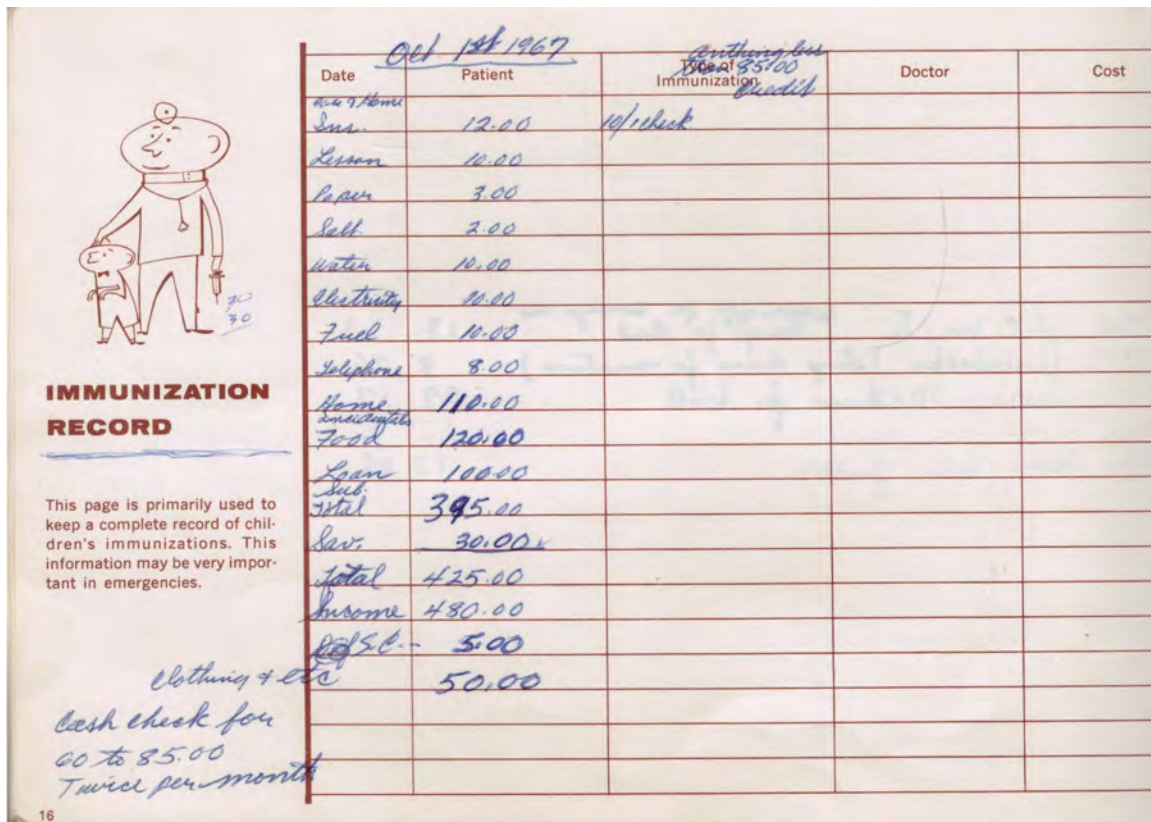 Oct 1st 1967
anything less
than 85.00
Credit
Date Patient Type of Immunization Doctor Cost
Home
Ins. 12.00 10/1 check
Lesson 10.00
Paper 3.00
Salt 2.00
Water 10.00
Electricity 10.00
Fuel 10.00
Telephone 8.00
Home 110.00
Incidentals
Food 120.00
Loan 100.00
Sub.
Total 395.00
Sav. 30.00
Total 425.00
Income 480.00
S.C. -- 5.00
Clothing & etc 50.00
30
IMMUNIZATION
RECORD
This page is primarily used to
keep a complete record of chil-
dren's immunizations. This
information may be very impor-
tant in emergencies.
Cash check for
60 to 85.00
Twice per month
16